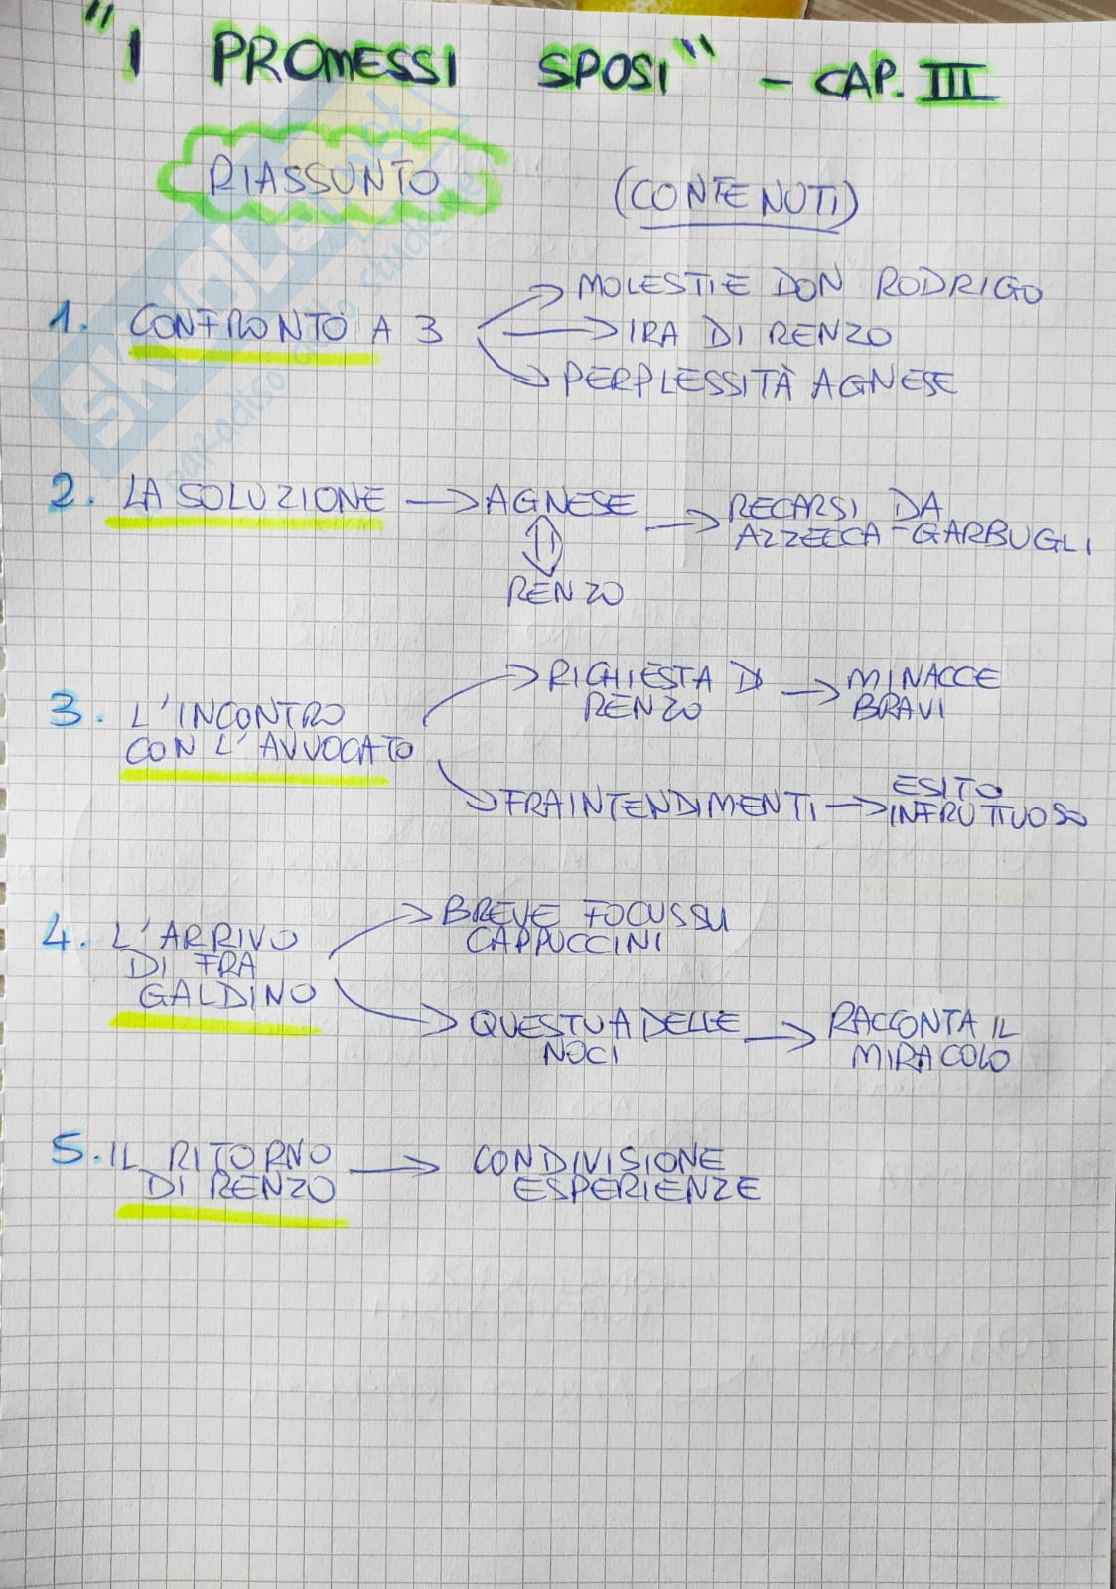 "I PROMESSI SPOSI" - CAP. III
RIASSUNTO (CONTENUTI)
1. CONFRONTO A 3
MOLESTIE DON RODRIGO
IRA DI RENZO
PERPLESSITÀ AGNESE
2. LA SOLUZIONE
AGNESE
RENZO
RECARSI DA
AZZECCA-GARBUGLI
3. L'INCONTRO
CON L'AVVOCATO
RICHIESTA DI
RENZO
MINACCE
BRAVI
FRAINTENDIMENTI
ESITO
INFRUTTUOSO
4. L'ARRIVO
DI FRA
GALDINO
BREVE FOCUS SU
CAPPUCCINI
QUESTUA DELLE
NOCI
RACCONTA IL
MIRACOLO
5. IL RITORNO
DI RENZO
CONDIVISIONE
ESPERIENZE